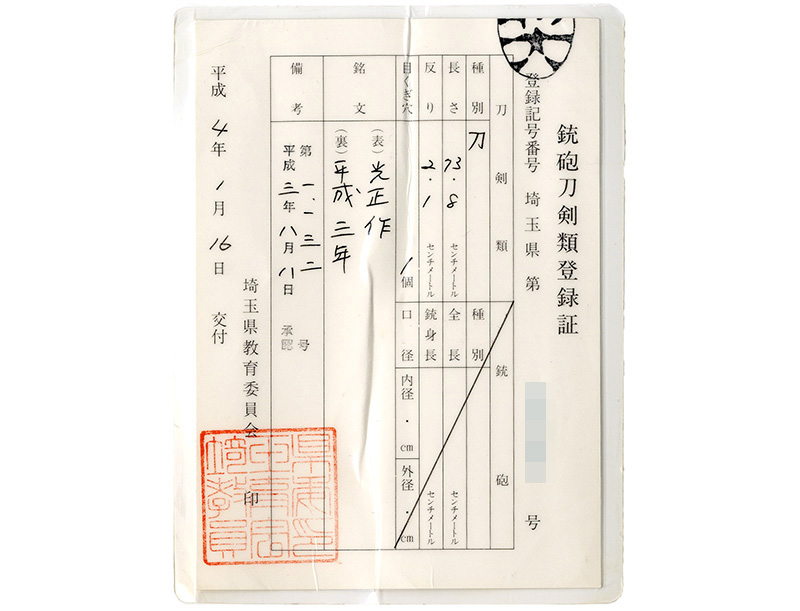 銃砲刀剣類登録証
登録記号番号 埼玉県 第 号
刀剣類
種別 刀
長さ 73.8 センチメートル
反り 2.1 センチメートル
目くぎ穴 1個
銘文
(表) 光正作
(裏) 平成三年
備考
第一一三二号
平成三年八月八日 承認
銃砲
種別
全長 センチメートル
銃身長 センチメートル
口径 内径 ・ cm 外径 ・ cm
平成4年1月16日 交付
埼玉県教育委員会 印